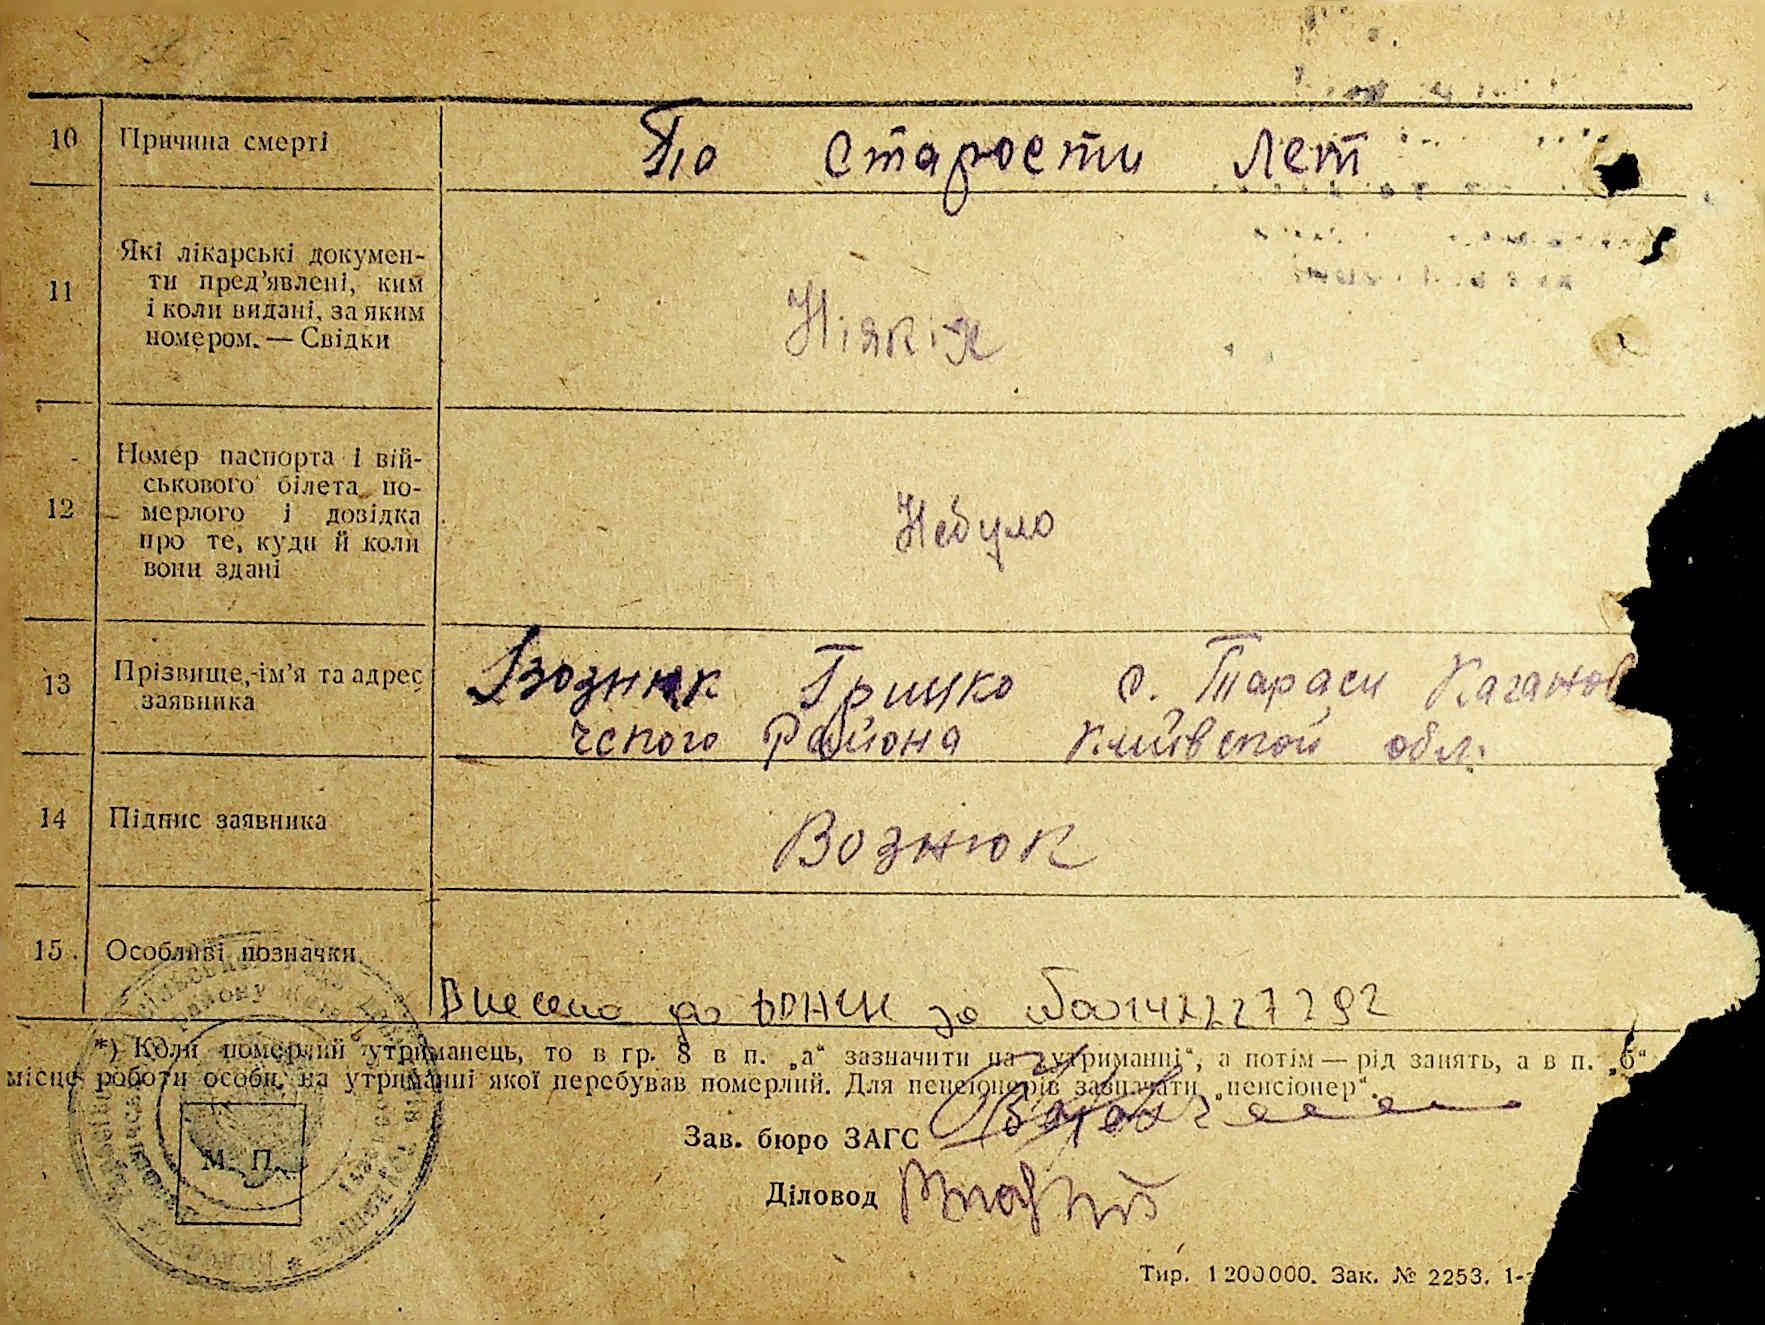 10 Причина смерті По старости лет
11 Які лікарські докумен-
ти пред’явлені, ким
і коли видані, за яким
номером. — Свідки
Ніякія
12 Номер паспорта і вій-
ськового білета по-
мерлого і довідка
про те, куди й коли
вони здані
Небуло
13 Прізвище, ім’я та адрес
заявника
Вознюк Грицко с. Тараси Каганов
чского Района Київской обл.
14 Підпис заявника Вознюк
15. Особливі позначки
Внесено до
*) Коли померлий утриманець, то в гр. 8 в п. „а“ зазначити „на утриманні“, а потім — рід занять, а в п. „б“
місце роботи особи, на утриманні якої перебував померлий. Для пенсіонерів зазначати „пенсіонер“.
Зав. бюро ЗАГС
М. П.
Діловод
Тир. 1 200000. Зак. № 2253. 1-